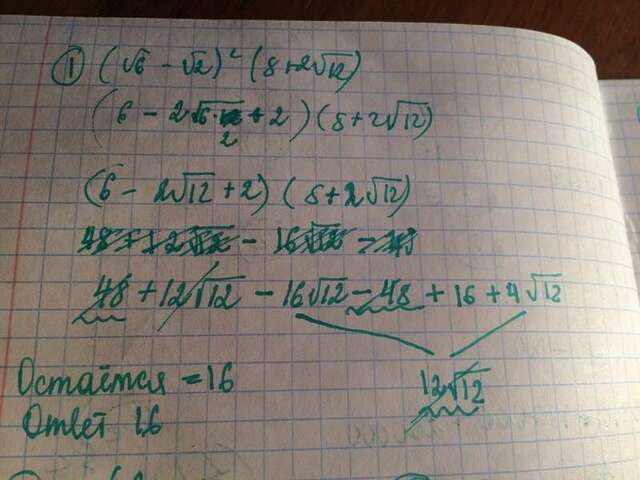 ① (√6 − √2)² (8+2√12)
(6 − 2√6·2 + 2) (8+2√12)
(6 − 2√12 + 2) (8+2√12)
48 + 12√12 − 16√12 − 48 + 16 + 4√12
12√12
Остаётся = 16
Ответ 16